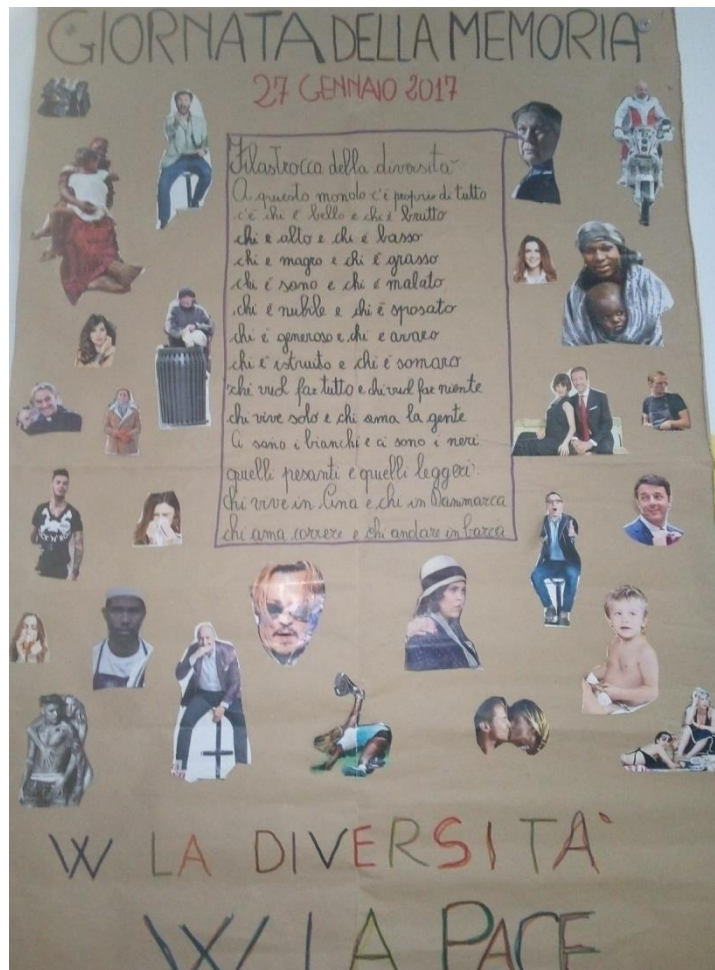 GIORNATA DELLA MEMORIA
27 GENNAIO 2017
Filastrocca della diversità
A questo mondo c'è proprio di tutto
c'è chi è bello e chi è brutto
chi e alto e chi é basso
chi e magro e chi é grasso
chi é sano e chi é malato
chi é nubile e chi é sposato
chi é generoso e chi e avaro
chi é istruito e chi é somaro
chi vuol far tutto e chi vuol far niente
chi vive solo e chi ama la gente
Ci sono i bianchi e ci sono i neri
quelli pesanti e quelli leggeri
chi vive in Cina e chi in Danimarca
chi ama correre e chi andare in barca
W LA DIVERSITÀ
W LA PACE